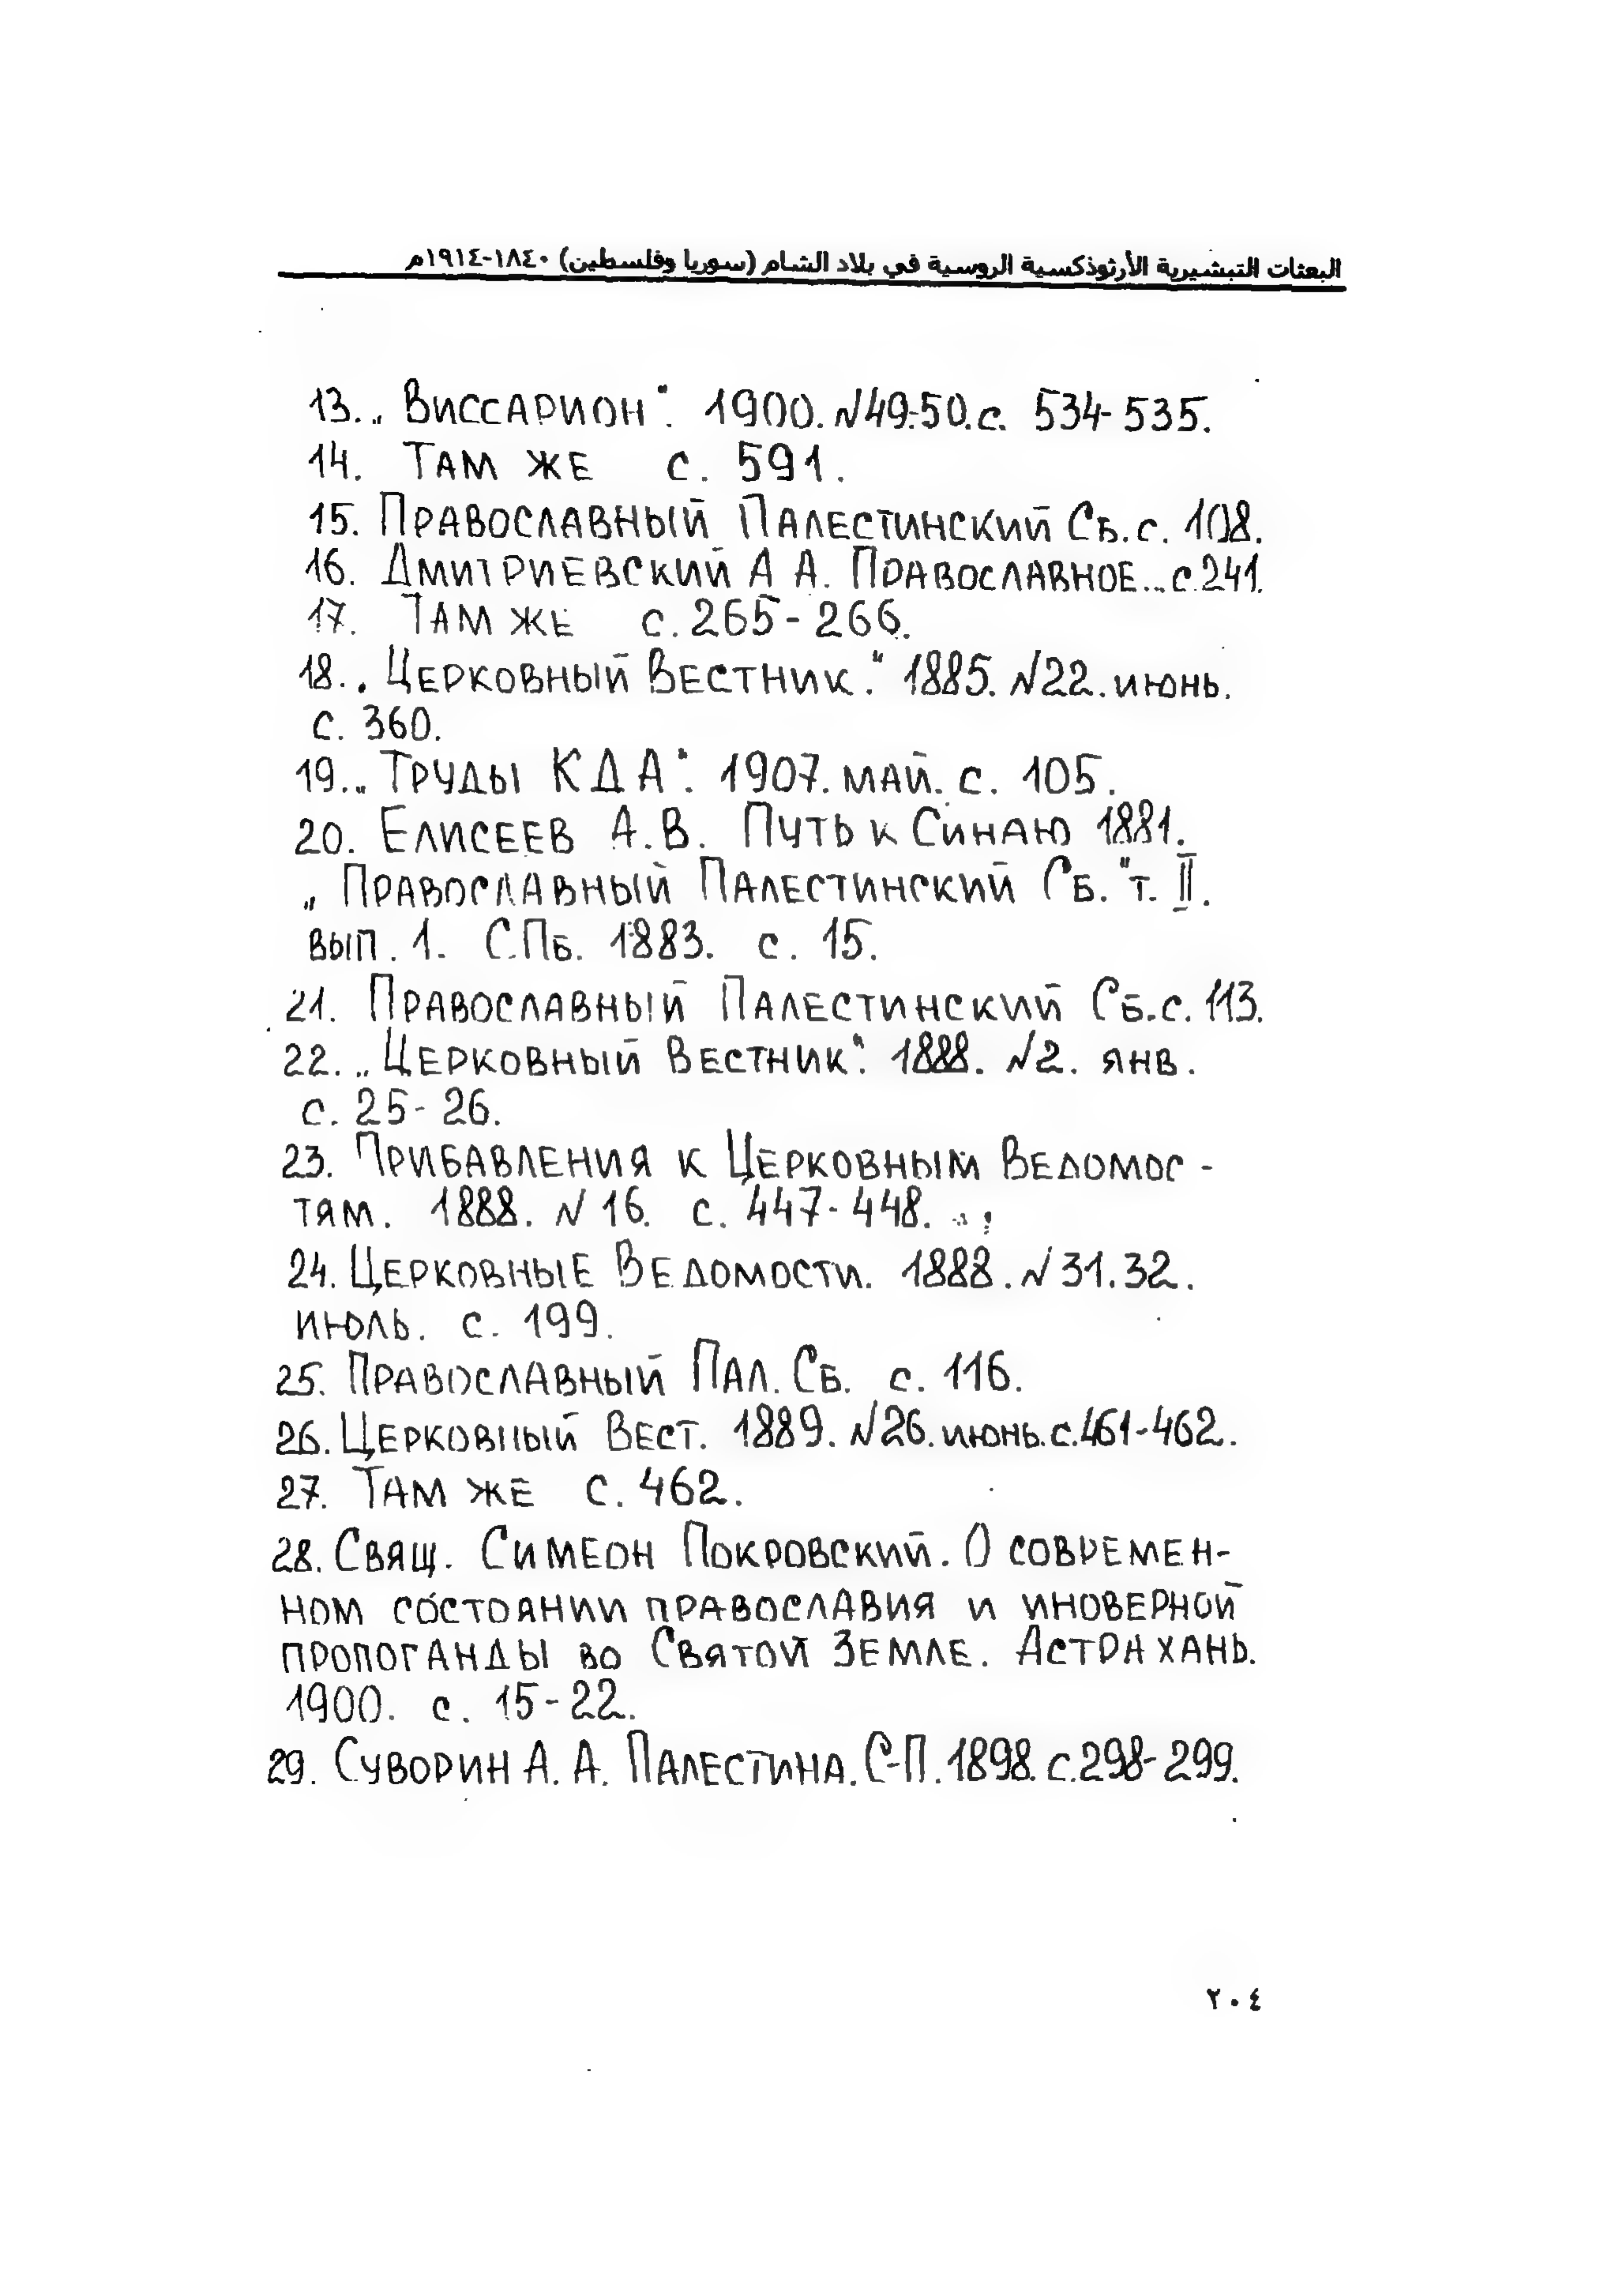 البعثات التبشيرية الأرثوذكسية الروسية في بلاد الشام (سوريا وفلسطين) ١٨٤٠-١٩١٤م
13. „Виссарион“. 1900. N49-50. с. 534-535.
14. Там же с. 591.
15. Православный Палестинский Сб. с. 108.
16. Дмитриевский А А. Православное... с. 241.
17. Там же с. 265-266.
18. „Церковный Вестник.“ 1885. N22. июнь.
с. 360.
19. „Труды КДА“. 1907. май. с. 105.
20. Елисеев А.В. Путь к Синаю 1881.
„Православный Палестинский Сб.“ т. II.
вып. 1. С.Пб. 1883. с. 15.
21. Православный Палестинский Сб. с. 113.
22. „Церковный Вестник“. 1888. N2. янв.
с. 25-26.
23. Прибавления к Церковным Ведомос-
тям. 1888. N 16. с. 447-448.
24. Церковные Ведомости. 1888. N 31.32.
июль. с. 199.
25. Православный Пал. Сб. с. 116.
26. Церковный Вест. 1889. N26. июнь. с. 461-462.
27. Там же с. 462.
28. Свящ. Симеон Покровский. О современ-
ном состоянии православия и иноверной
пропоганды во Святой Земле. Астрахань.
1900. с. 15-22.
29. Суворин А. А. Палестина. С-П. 1898. с. 298-299.
٢٠٤